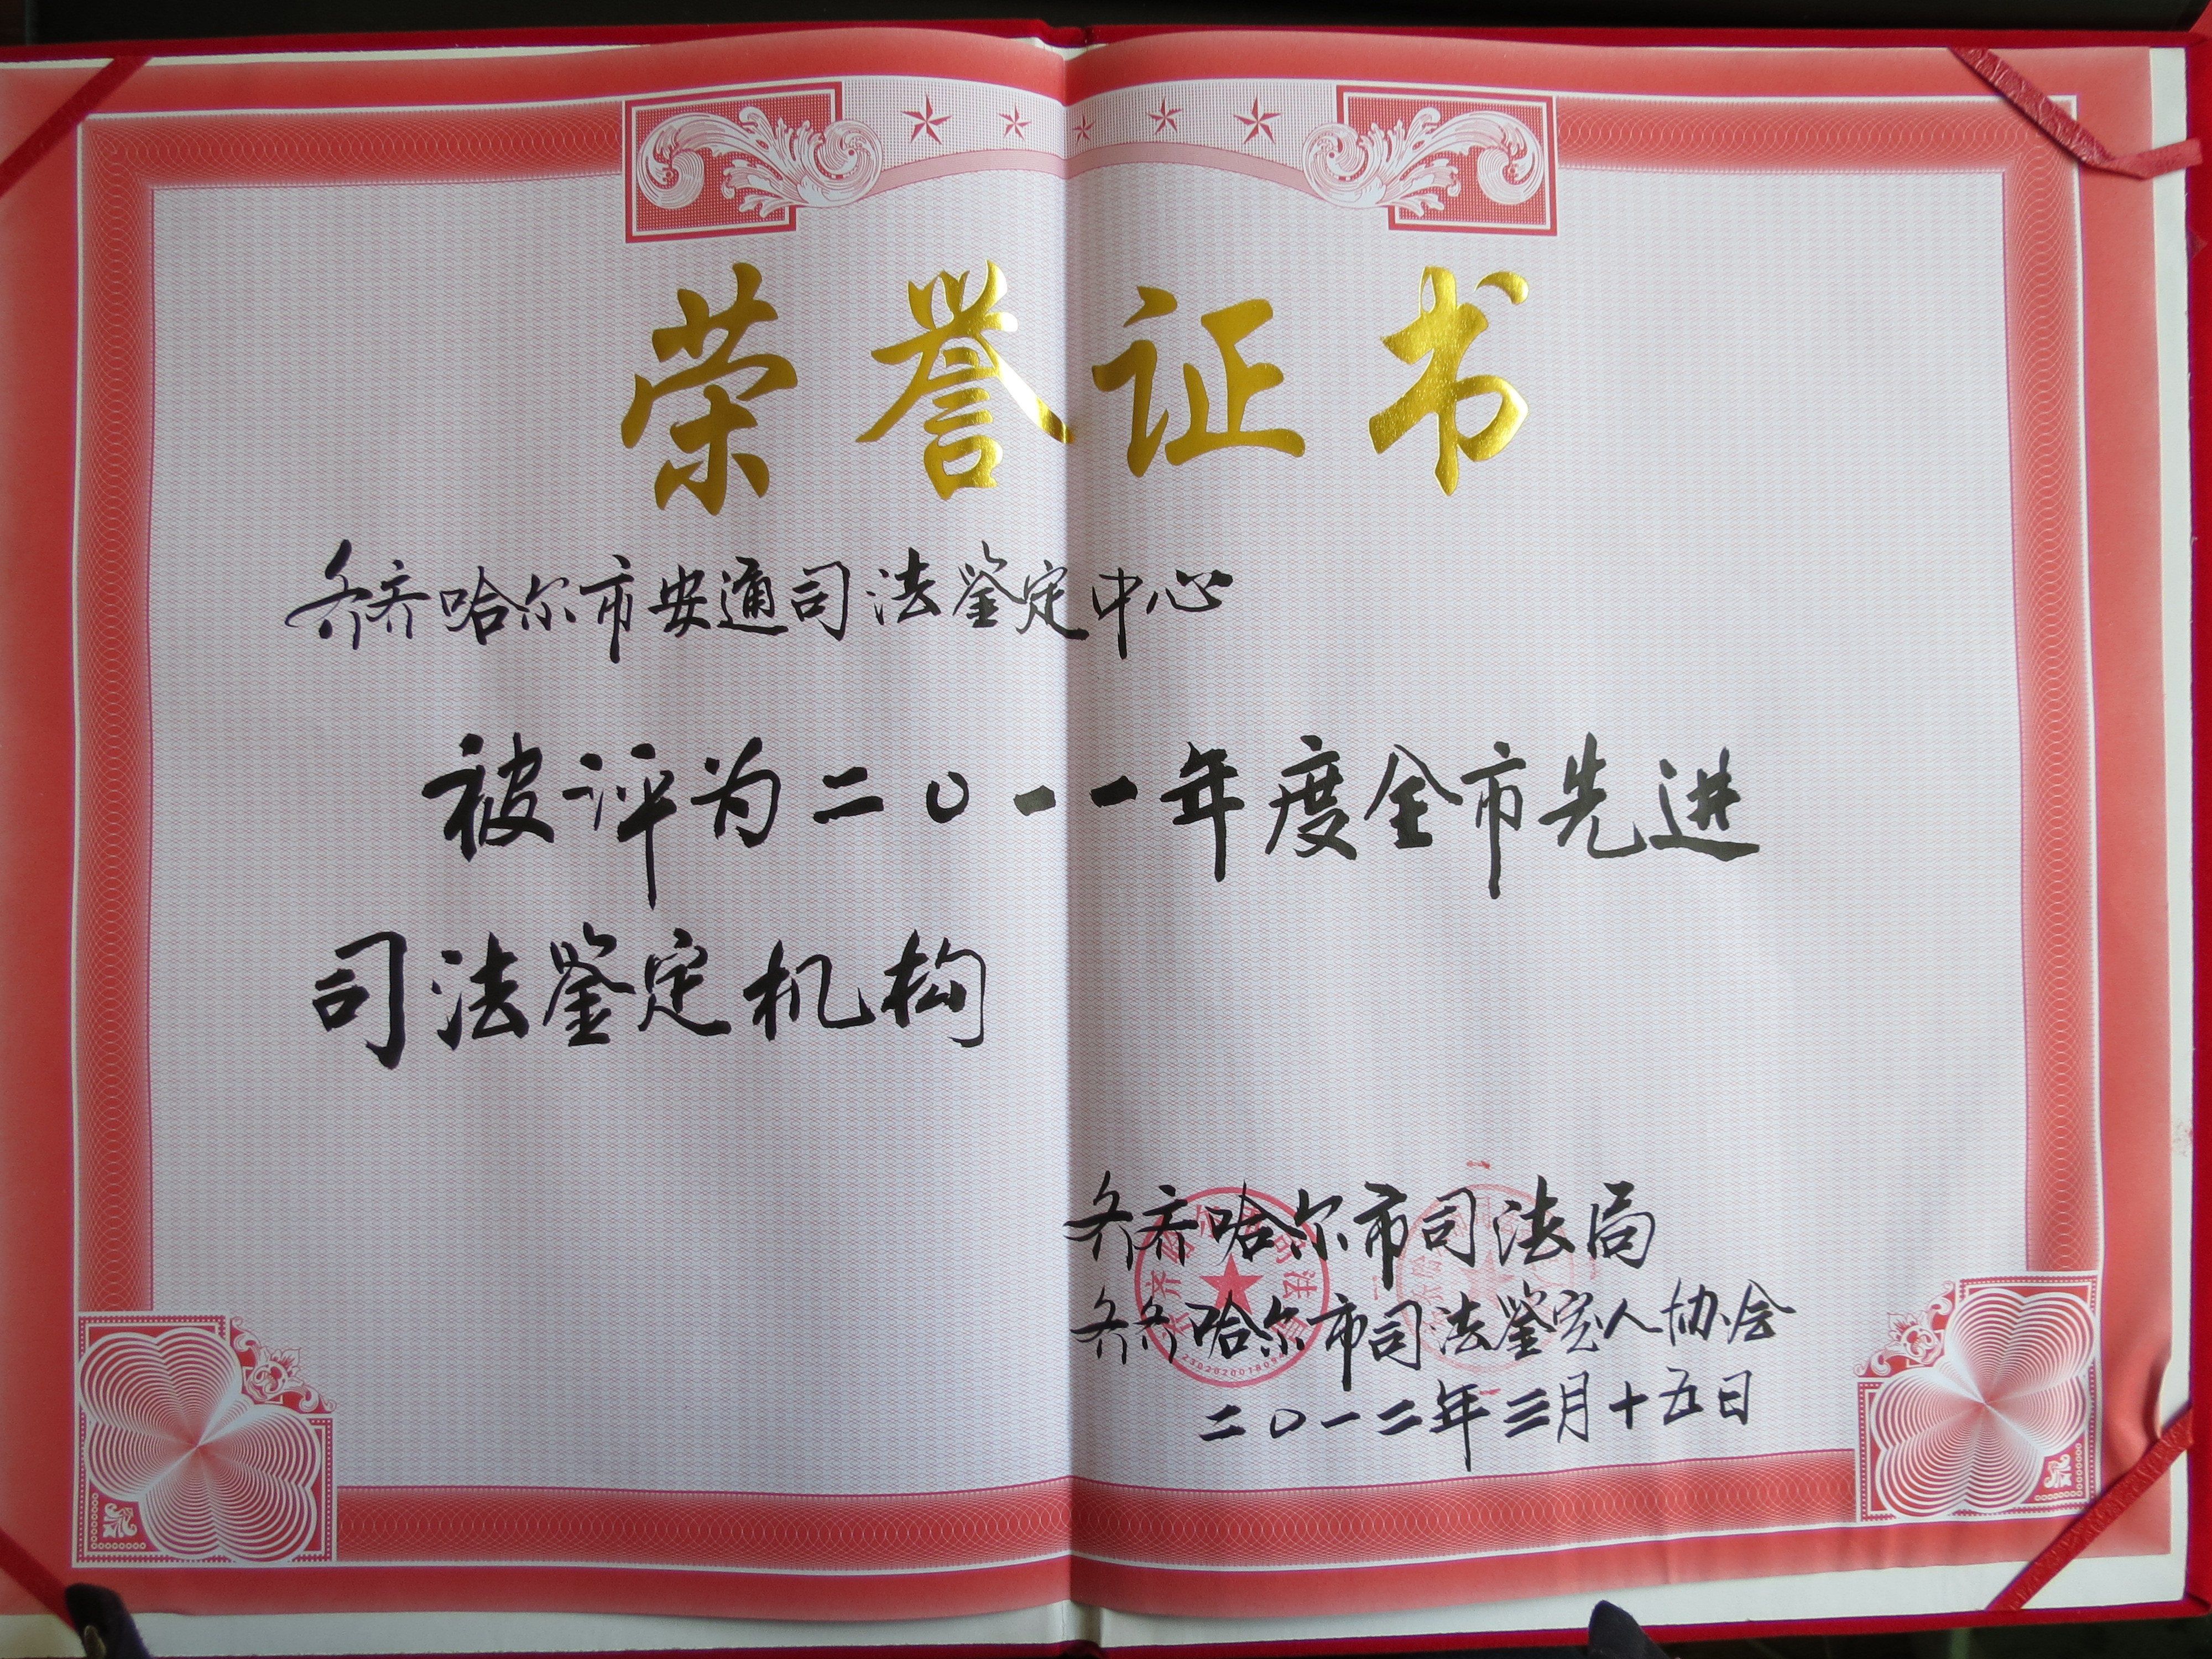 荣誉证书
齐齐哈尔市安通司法鉴定中心
被评为二〇一一年度全市先进
司法鉴定机构
齐齐哈尔市司法局
齐齐哈尔市司法鉴定人协会
二〇一二年三月十五日